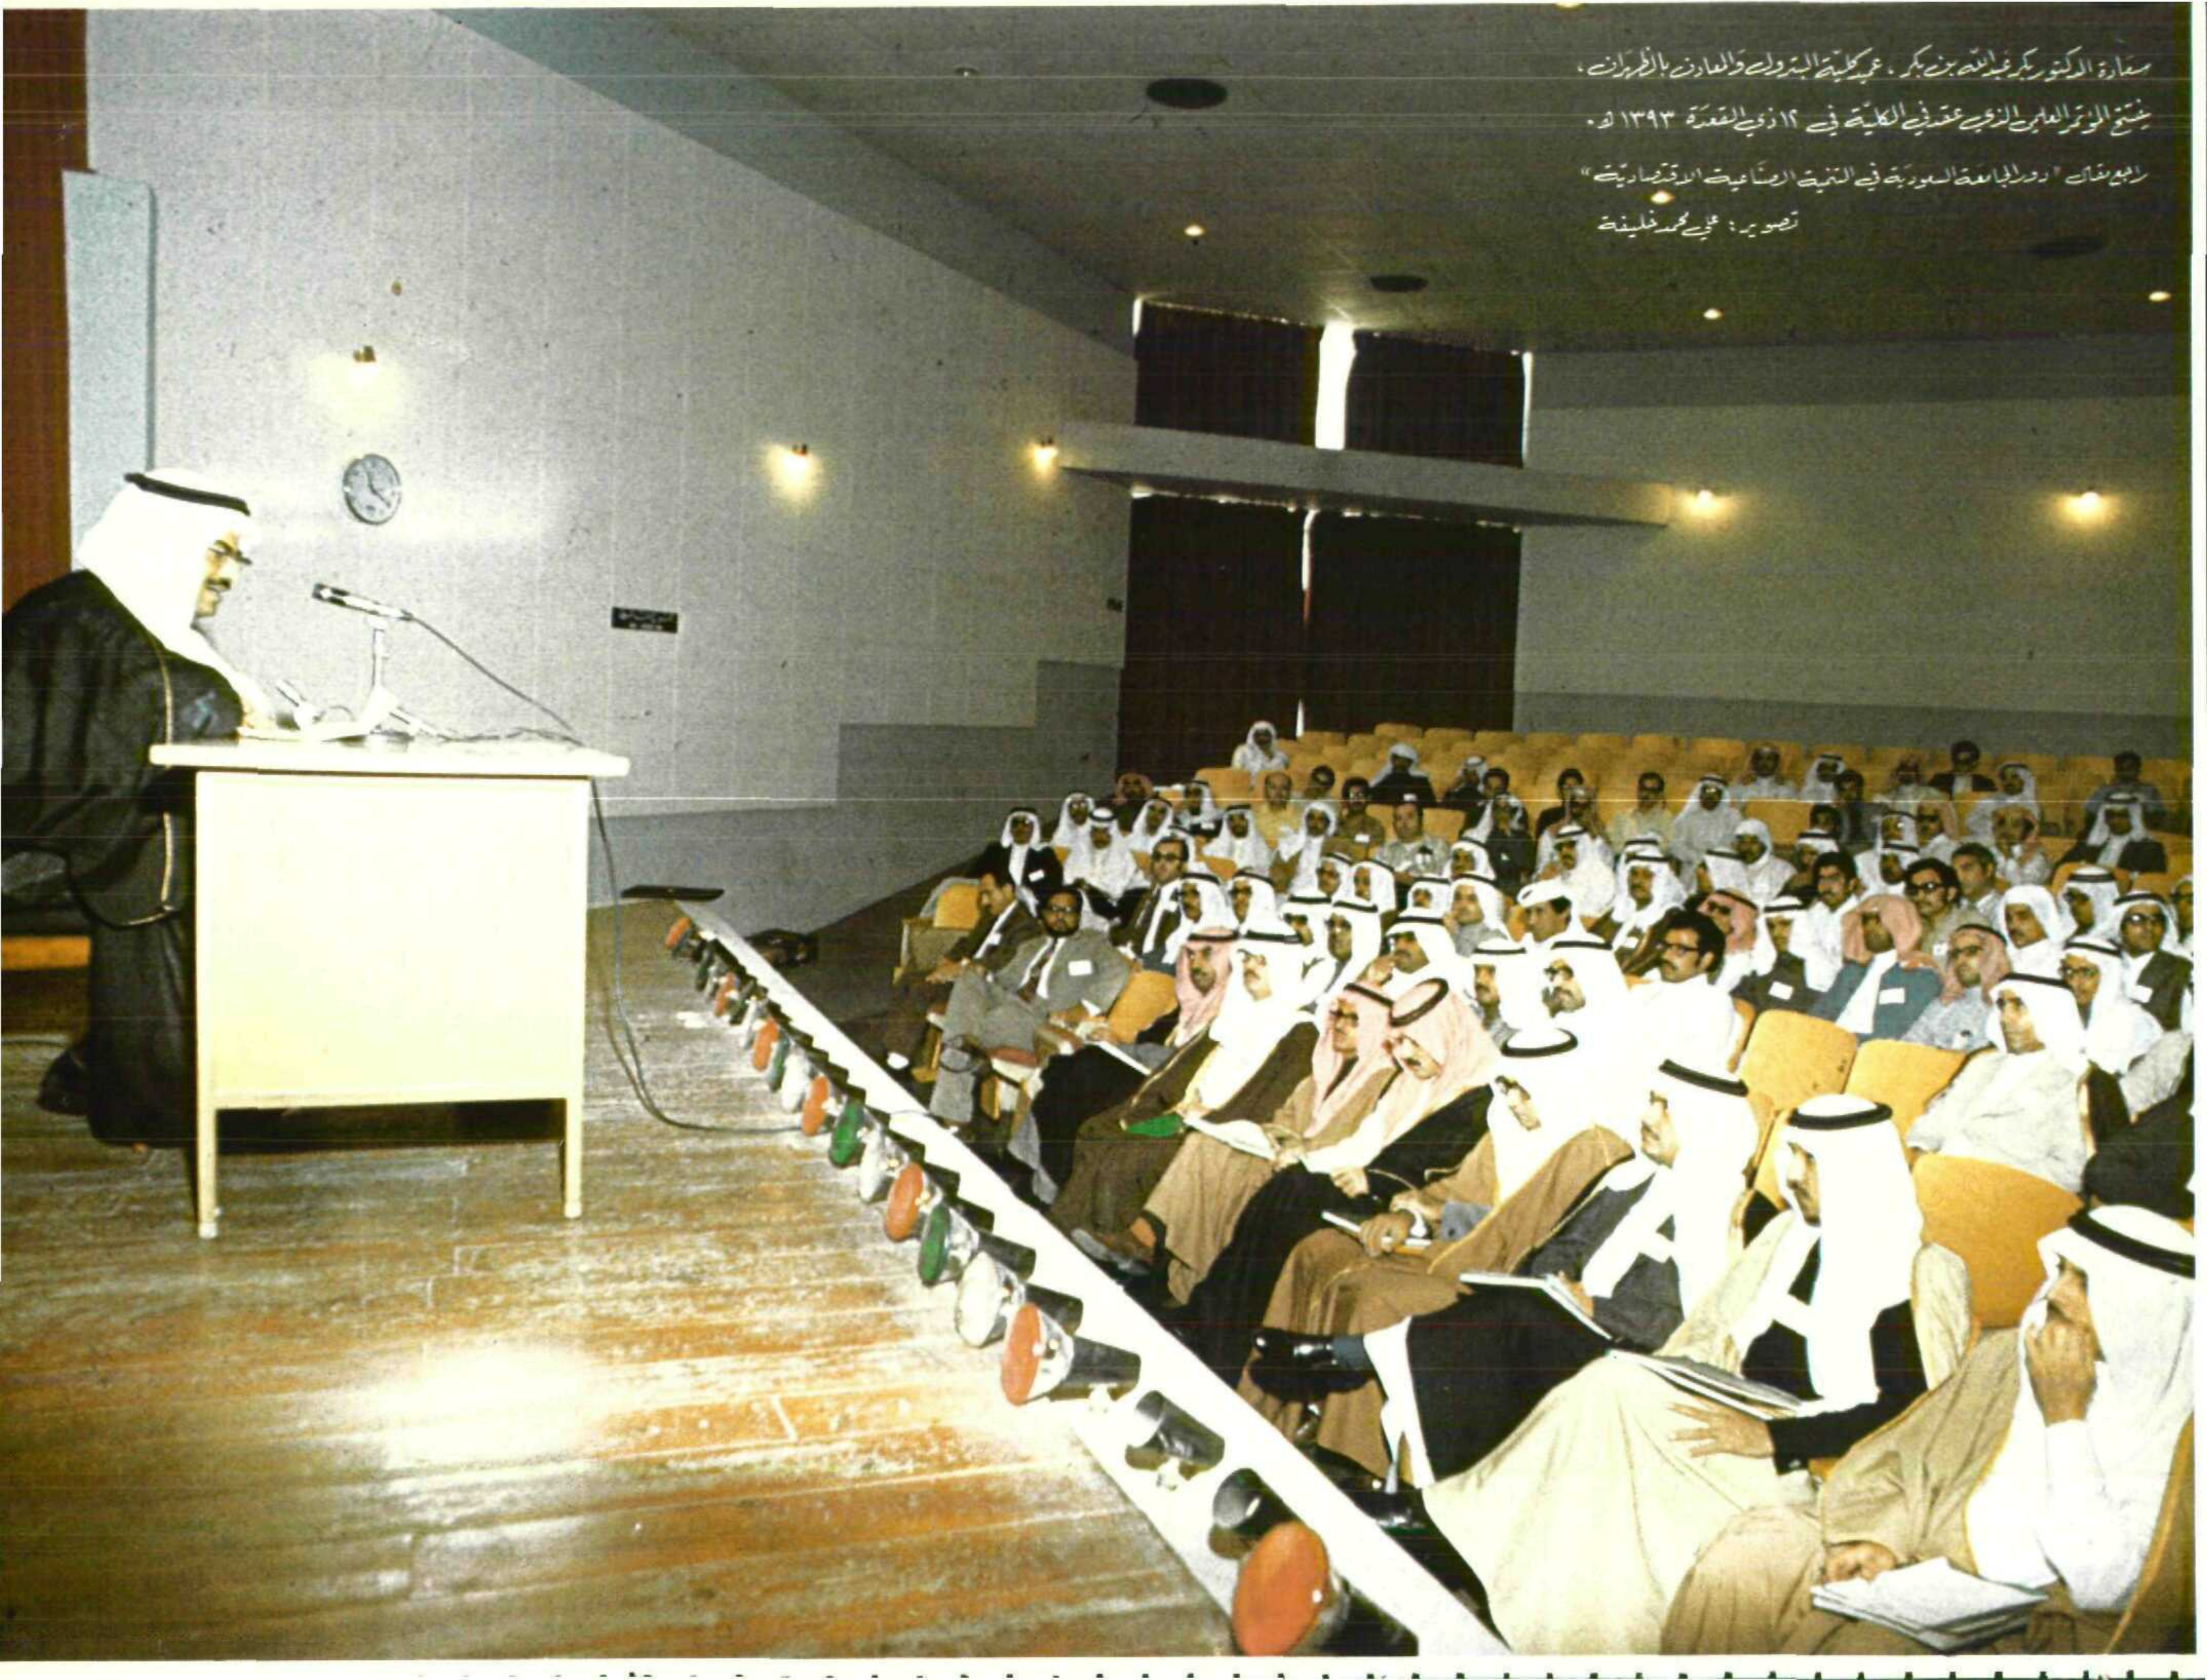 سعادة الدكتور بكر عبدالله بن بكر ، عميد كلية البترول والمعادن بالظهران ،
يفتتح المؤتمر العلمي الذي عقد في الكلية في ١٢ ذي القعدة ١٣٩٣ هـ .
راجع مقال " دور الجامعة السعودية في التنمية الصناعية الاقتصادية "
تصوير : علي محمد خليفة